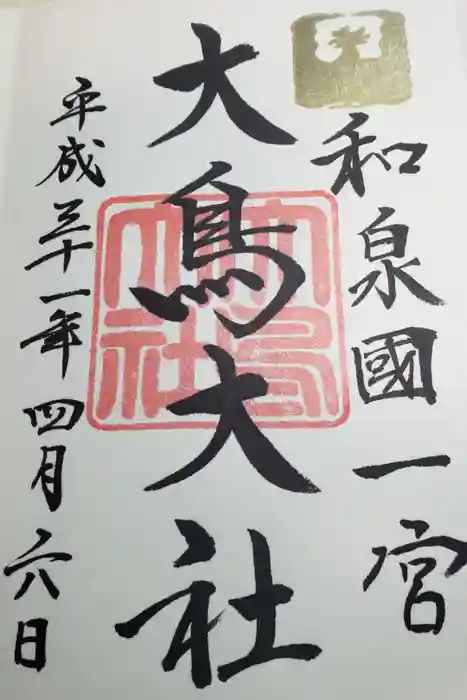 和泉國一宮
大鳥大社
平成三十一年四月六日
大鳥大社